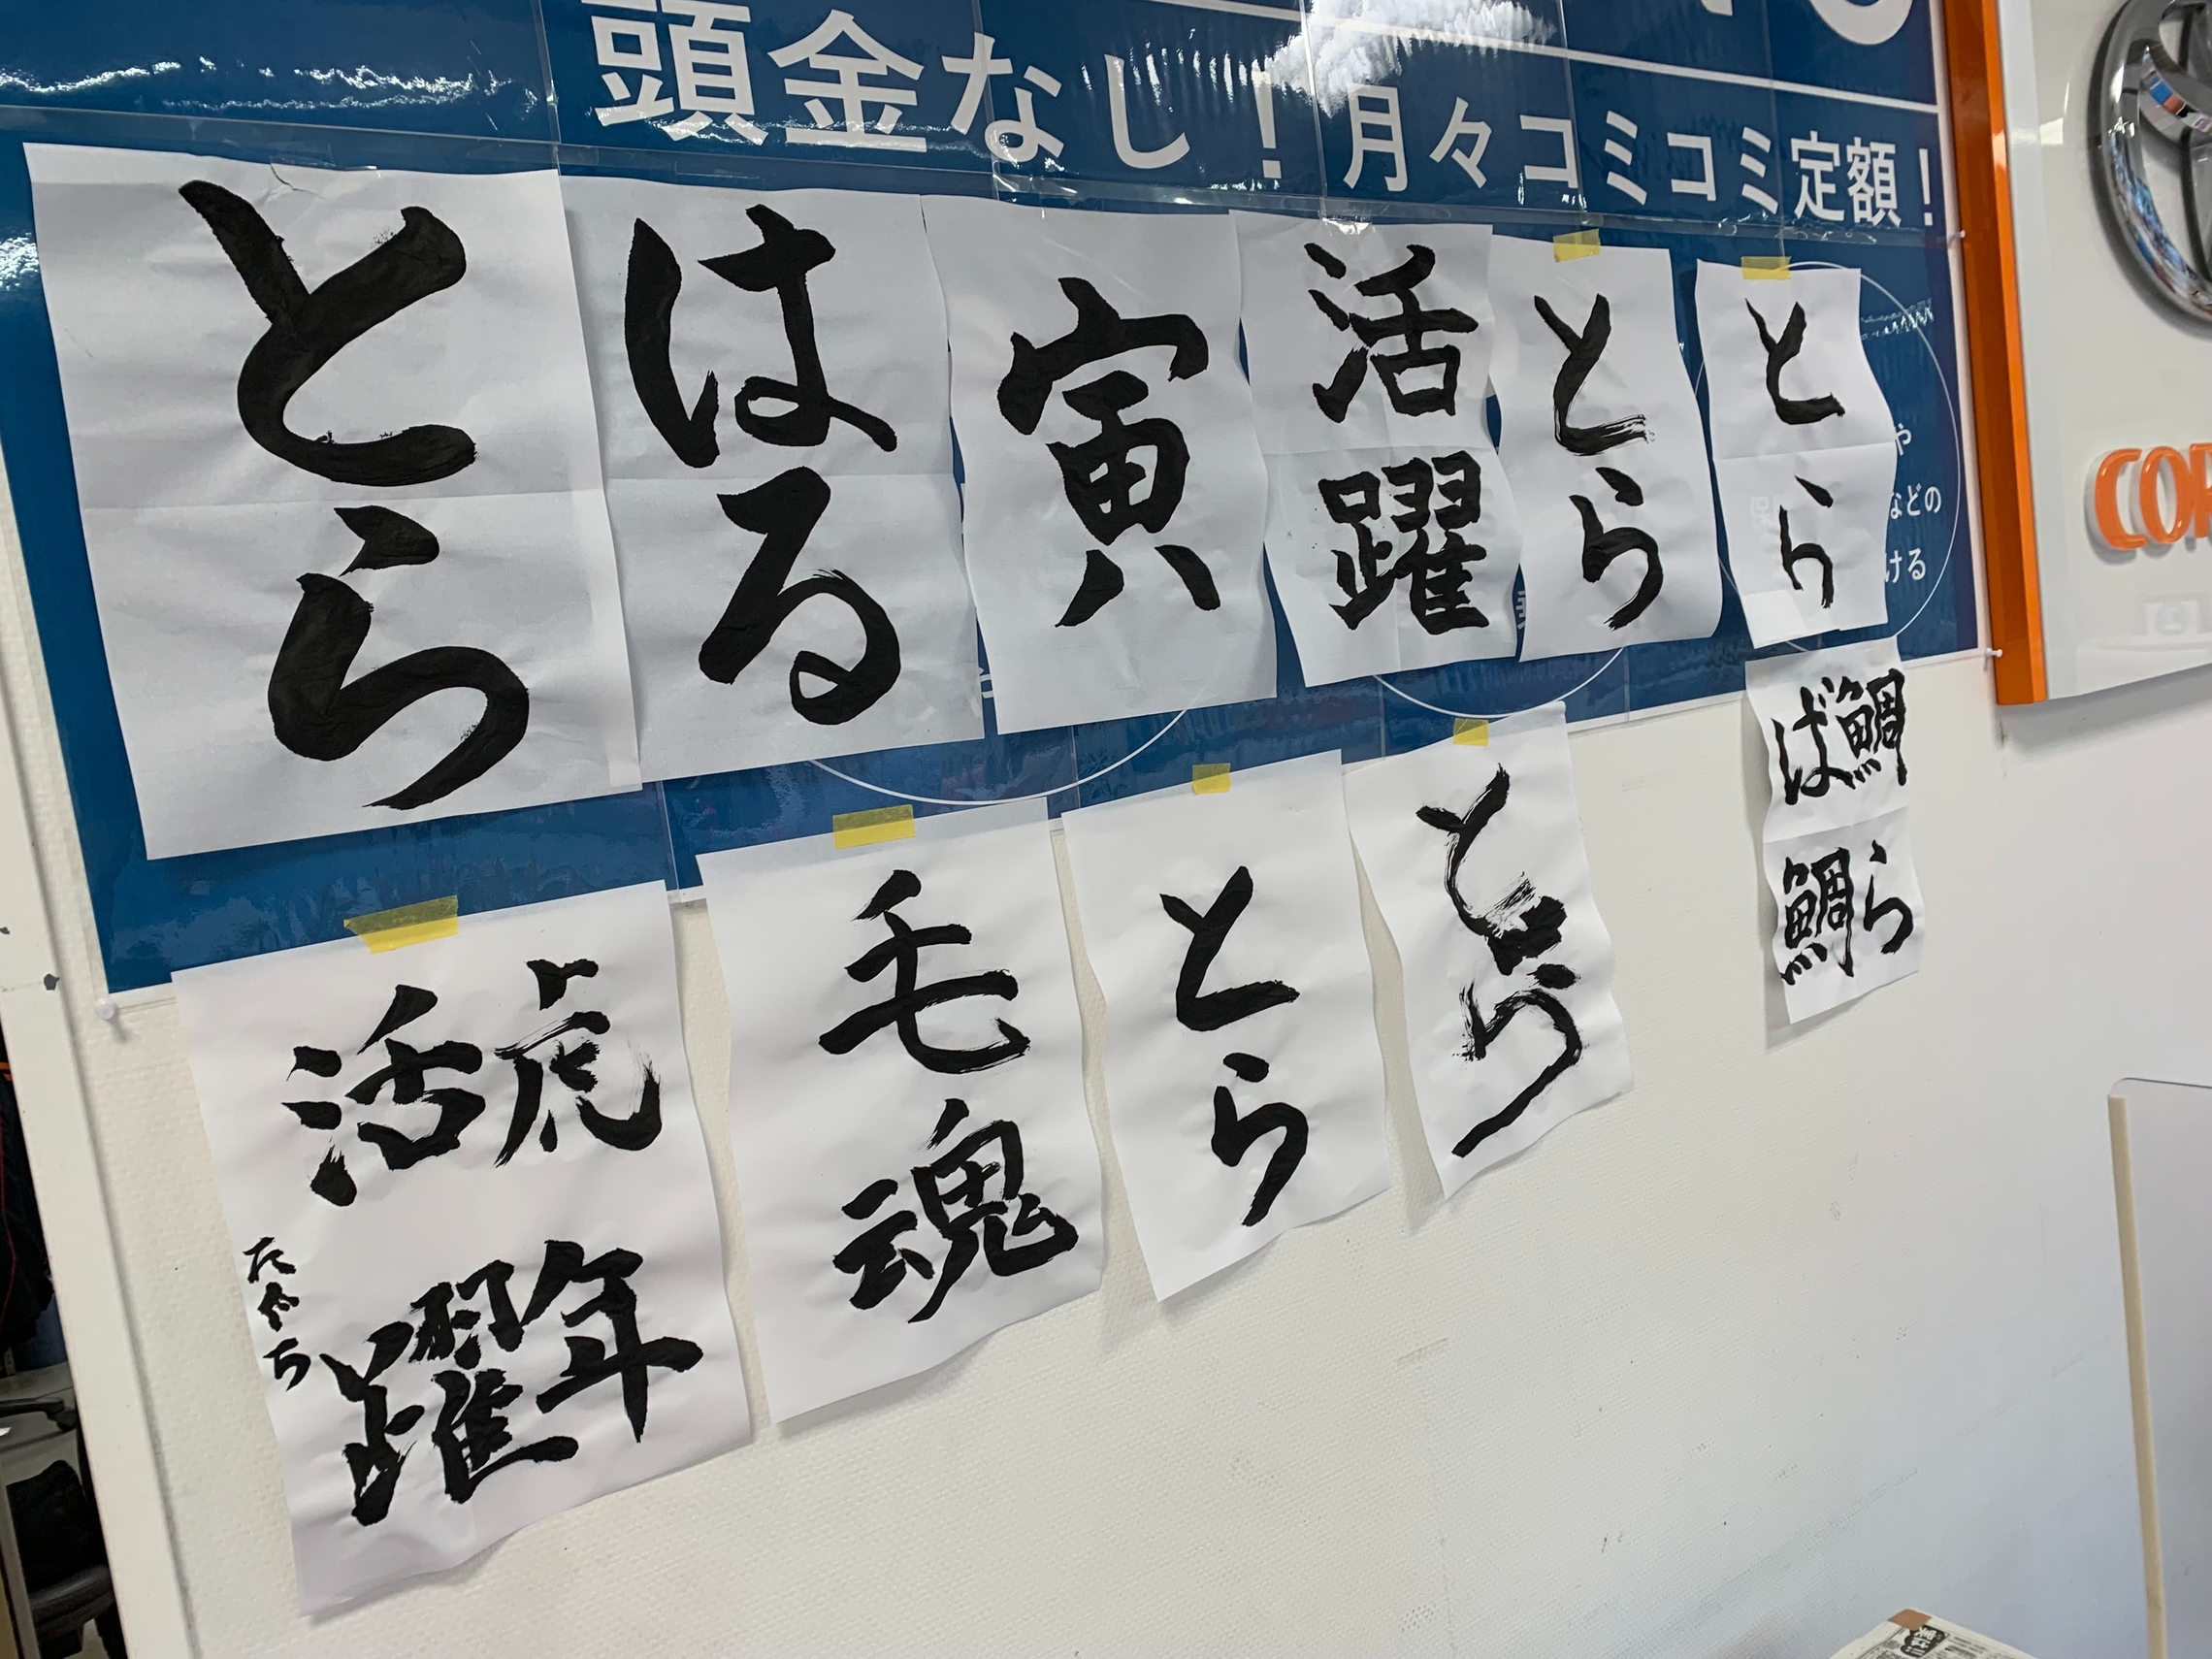 頭金なし！月々コミコミ定額！
とら
はる
寅
活躍
とら
とら
や
などの
ける
COR
鯛ら
ば鯛
虎年
活躍
毛魂
とら
とら